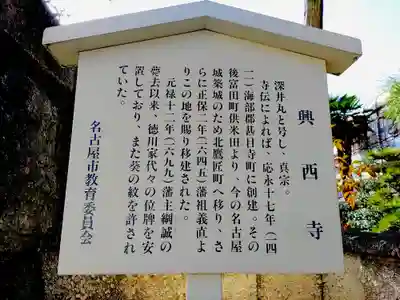 興西寺
深井丸と号し、真宗。
寺伝によれば、応永十七年（一四
一〇）海部郡甚目寺町に創建。その
後富田町供米田より、今の名古屋
城築城のため北鷹匠町へ移り、さ
らに正保二年（一六四五）藩祖義直よ
りこの地を賜り移建された。
元禄十二年（一六九九）藩主綱誠の
薨去以来、徳川家代々の位牌を安
置しており、また葵の紋を許され
ていた。
名古屋市教育委員会